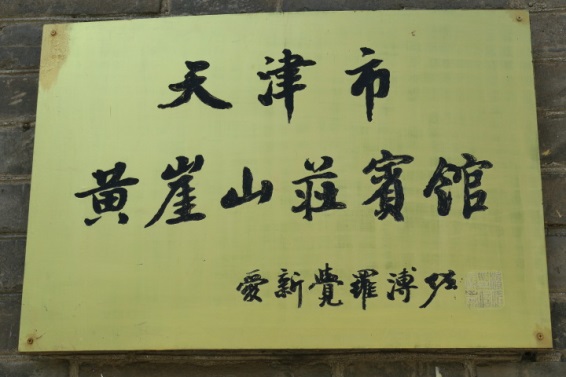 天津市
黄崖山莊賓館
愛新覺羅溥佐